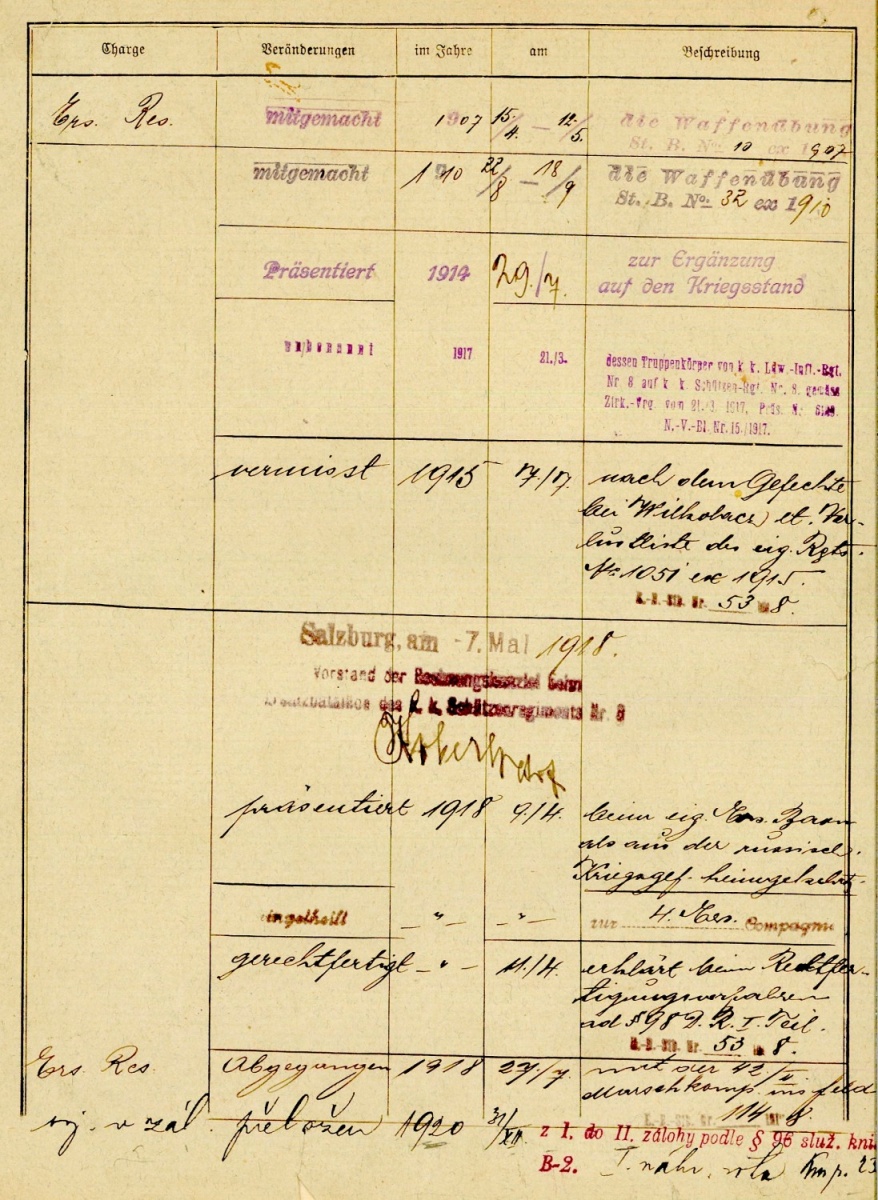 Charge Veränderungen im Jahre am Beschreibung
Ers. Res. mitgemacht 1907 15./4. – 12./5. die Waffenübung
St. B. No 10 ex 1907
mitgemacht 1910 22/8 – 18/9 die Waffenübung
St. B. No 32 ex 1910
Präsentiert 1914 29./7. zur Ergänzung
auf den Kriegsstand
1917 21./3. dessen Truppenkörper von k. k. Ldw.-Inft.-Rgt.
Nr. 8 auf k. k. Schützen-Rgt. Nr. 8 gemäss
Zirk.-Vrg. vom 21./3. 1917, Präs. Nr.
N.-V-Bl. Nr. 15./1917.
vermisst 1915 7/7. nach dem Gefechte
bei Wilkolacz et. Ver-
lustliste des eig. Rgts.
No 1051 ex 1915.
Nr. 53 8.
Salzburg, am -7. Mai 1918.
Vorstand der
des k. k. Schützenregiments Nr. 8
präsentiert 1918 9./4. beim eig. Ers. Baon
als aus der russisch.
Kriegsgef. heimgekehrt.
eingeteilt – " – – " – zur 4. Ers. Compagnie
gerechtfertigt – " – 11./4. erklärt beim Rechtfer-
tigungsverfahren
ad § 98 D. R. I. Teil.
Nr. 53 8.
Ers. Res. Abgegangen 1918 27./7. mit der 42/II
Marschkomp. ins Feld
114 8
voj. v zál. přeložen 1920 31/XII z I. do II. zálohy podle § 96 služ. kni
B-2. I. náhr. rota